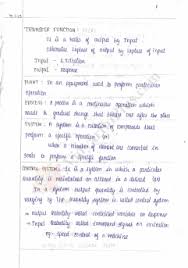 TRANSFER FUNCTION :-
It is a ratio of output by Input
Otherwise laplace of output by laplace of Input
Input - Excitation
Output - response
PLANT :- is an equipment used to perform particular
operation
PROCESS :- A process is a continuous operation which
leads a gradual change that takes one after the other
SYSTEM :- A system is a combination of components that
perform a specific operation (or)
when a number of element are connected in
to perform a specific function
CONTROL SYSTEM :- It is a system in which a particular
quantity is maintained or altered in a desired
In a system output quantity is controlled by
varying by the quantity is called control system
→ output quantity called controlled variable or response
→ Input quantity called command signal or excitation
eg:- speed control of a machine